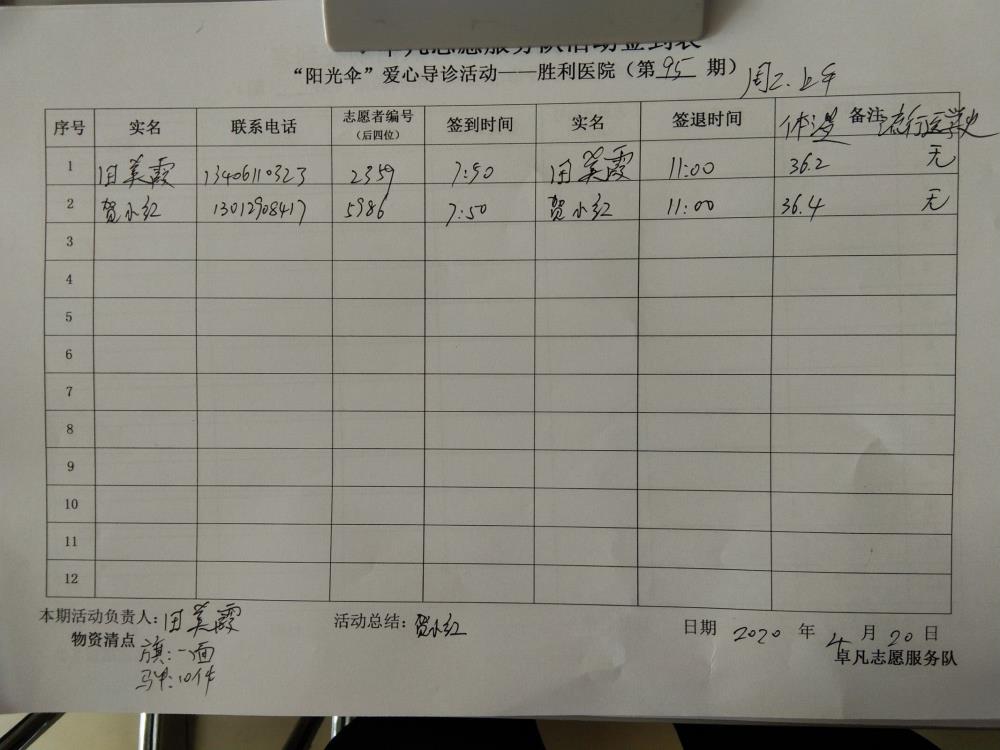 卓凡志愿服务队活动签到表
“阳光伞”爱心导诊活动——胜利医院（第 95 期） 周2.上午
序号 实名 联系电话 志愿者编号（后四位） 签到时间 实名 签退时间 体温 备注 流行医学史
1 田美霞 13406110323 2359 7:50 田美霞 11:00 36.2 无
2 贺小红 13012908417 5986 7:50 贺小红 11:00 36.4 无
3
4
5
6
7
8
9
10
11
12
本期活动负责人：田美霞 活动总结：贺小红 日期 2020 年 4 月 20 日
物资清点 旗：一面 卓凡志愿服务队
马甲：10件